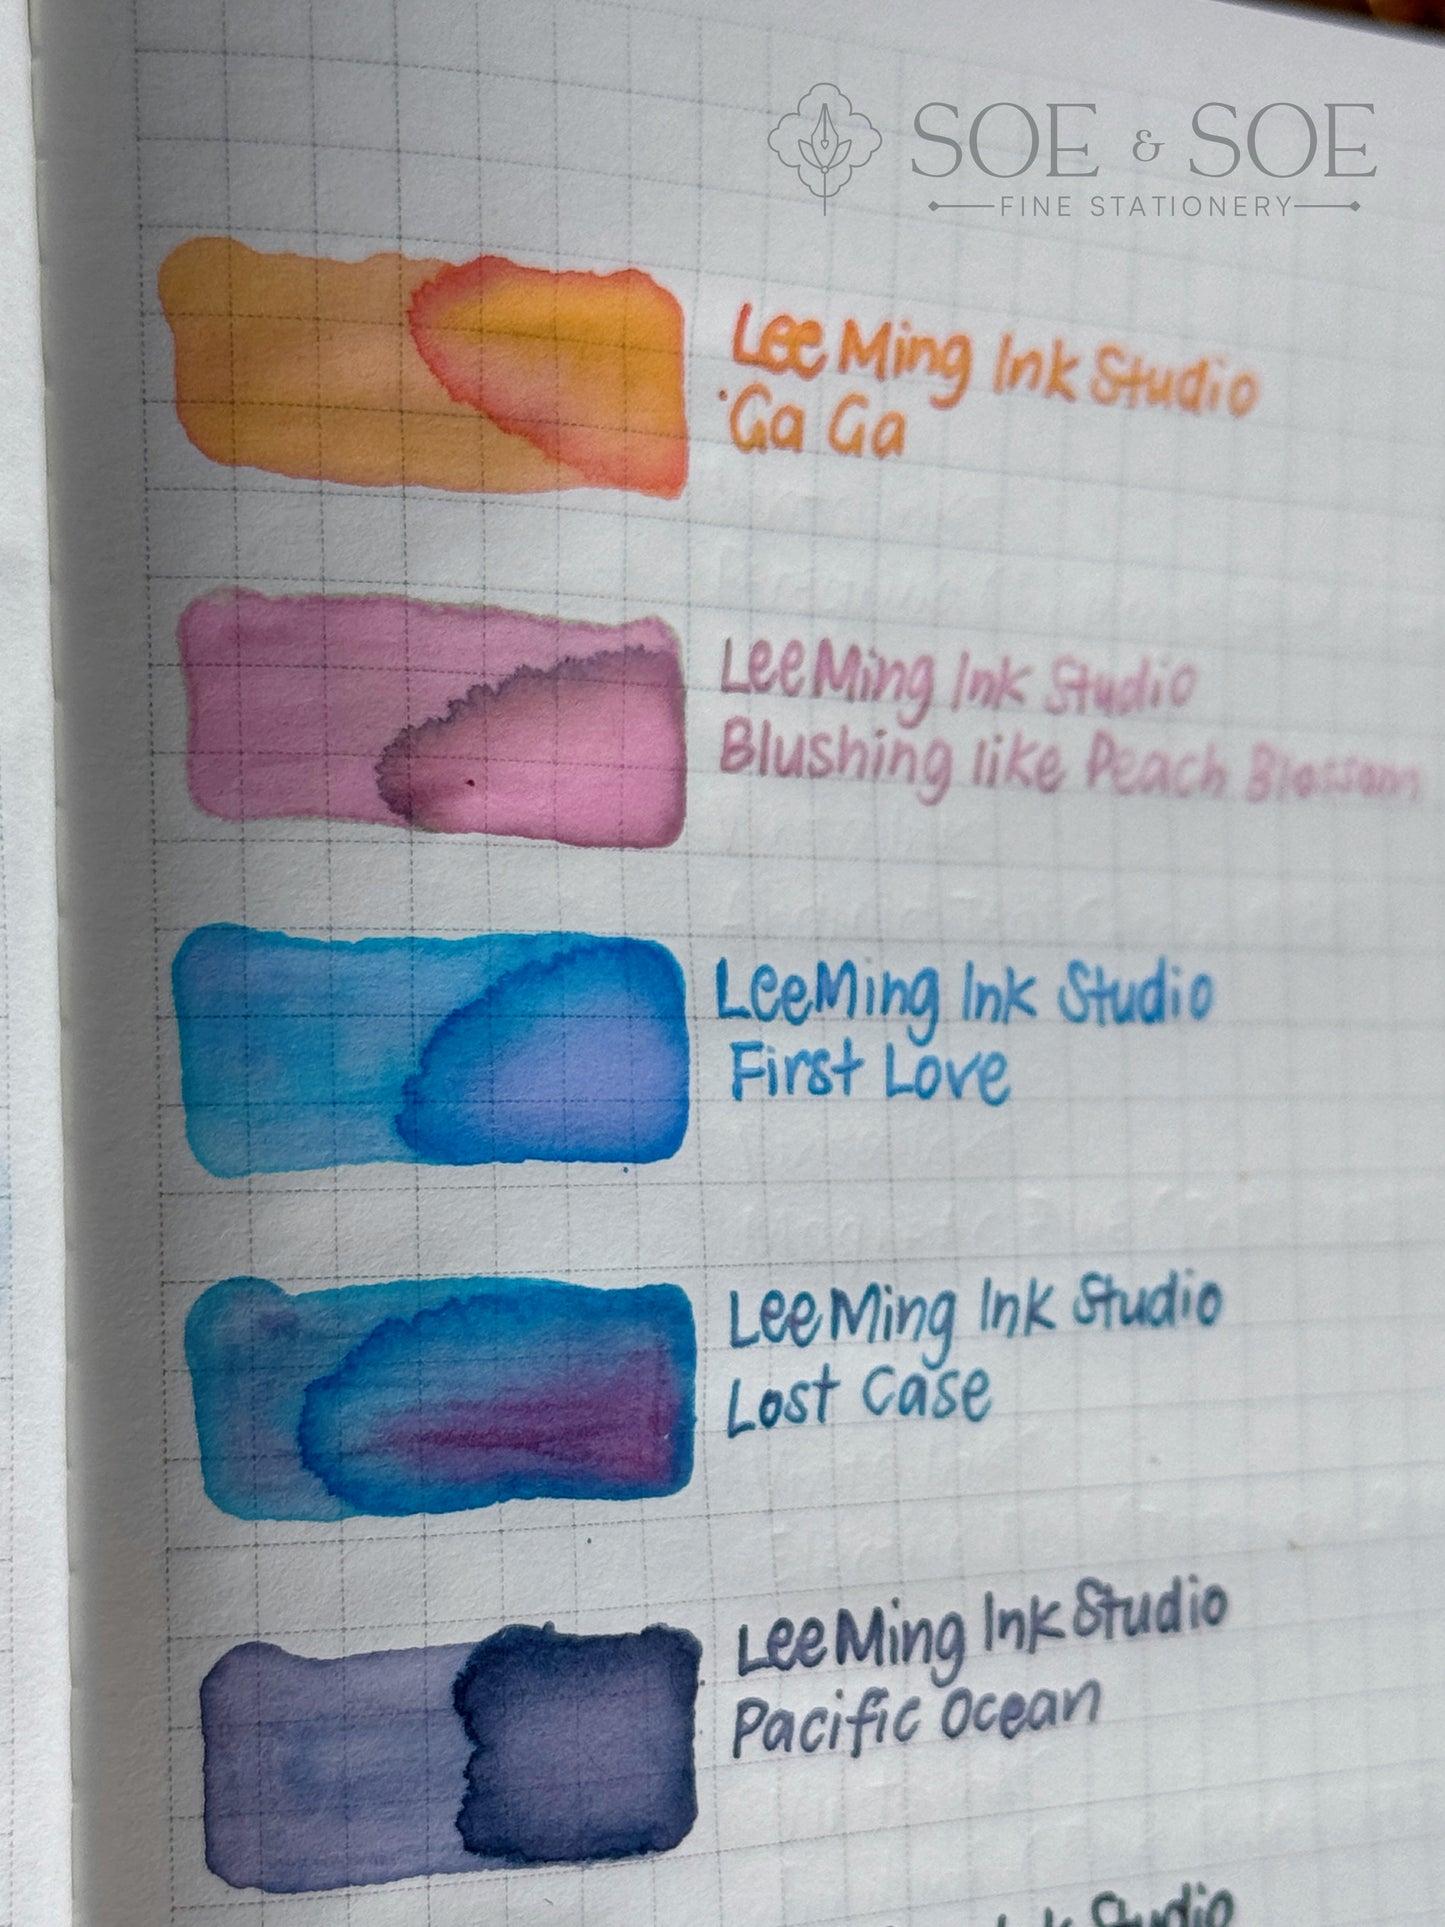 SOE & SOE
FINE STATIONERY
Lee Ming Ink Studio
Ga Ga
LeeMing Ink Studio
Blushing like Peach Blossom
LeeMing Ink Studio
First Love
LeeMing Ink Studio
Lost Case
LeeMing Ink Studio
Pacific Ocean
Ink Studio